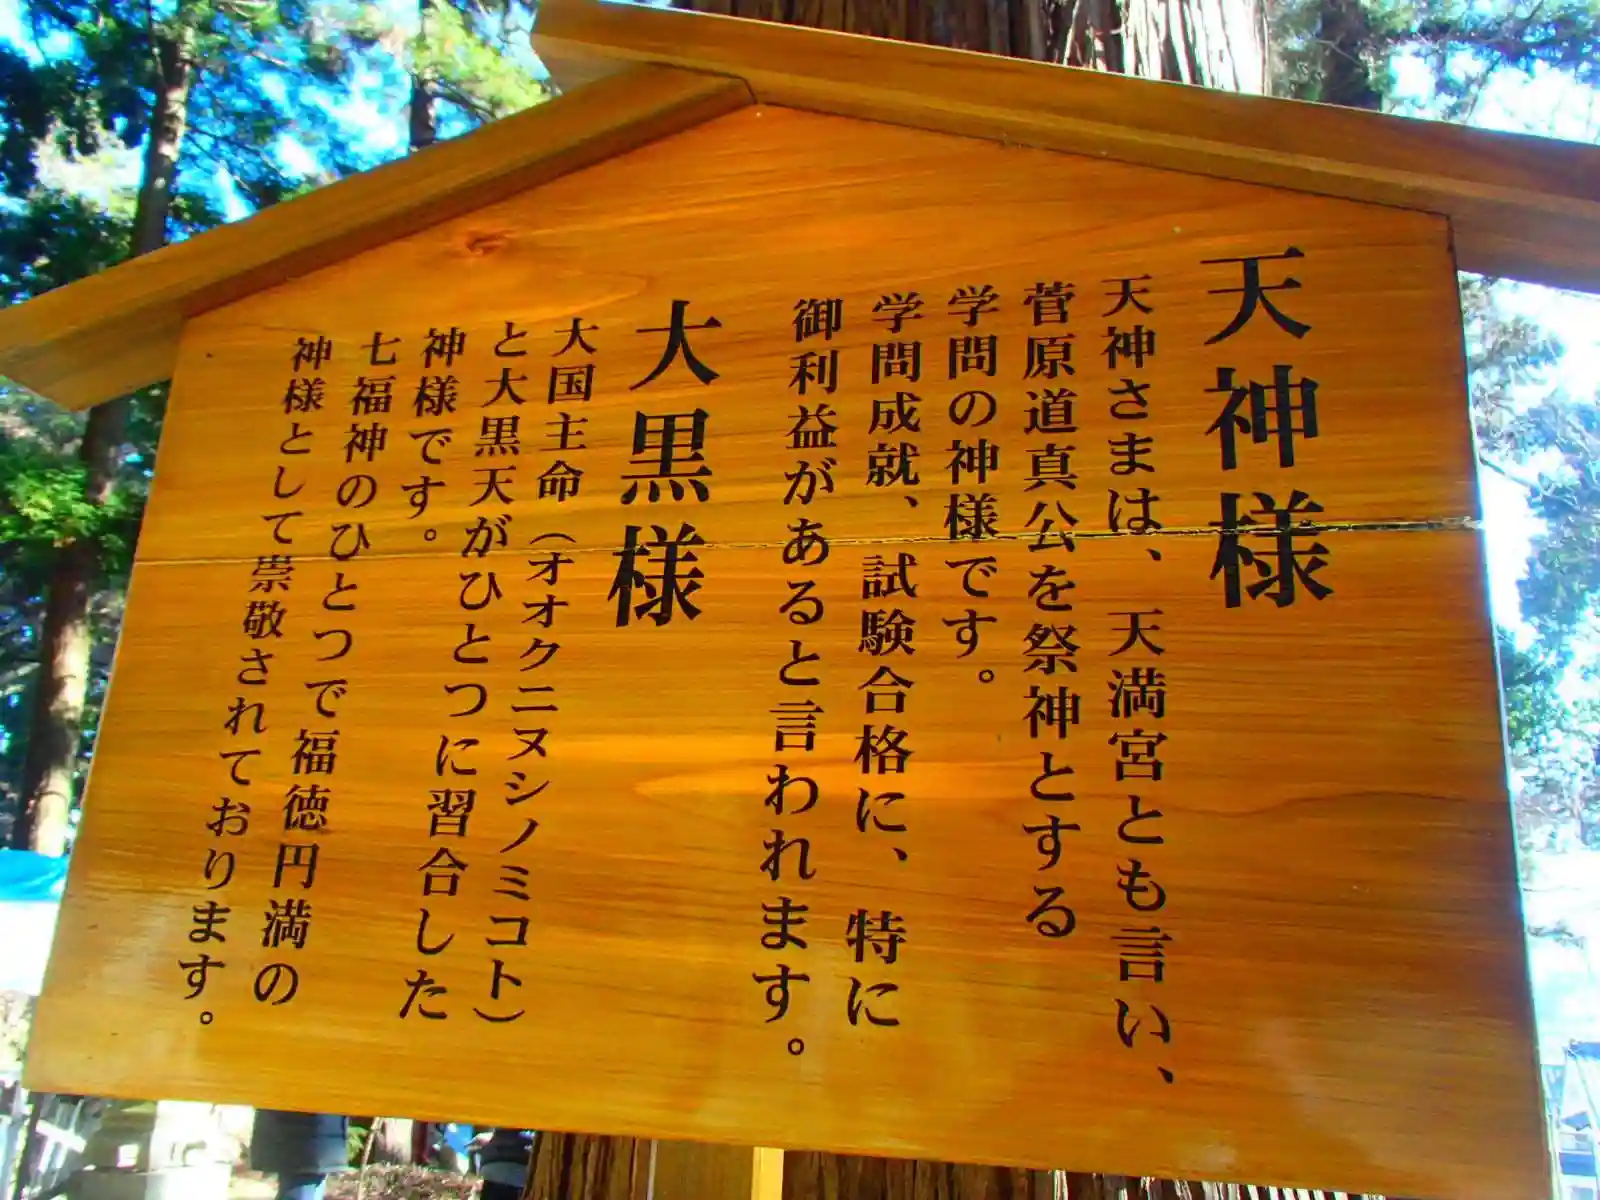 天神様
天神さまは、天満宮とも言い、
菅原道真公を祭神とする
学問の神様です。
学問成就、試験合格に、特に
御利益があると言われます。
大黒様
大国主命（オオクニヌシノミコト）
と大黒天がひとつに習合した
神様です。
七福神のひとつで福徳円満の
神様として崇敬されております。